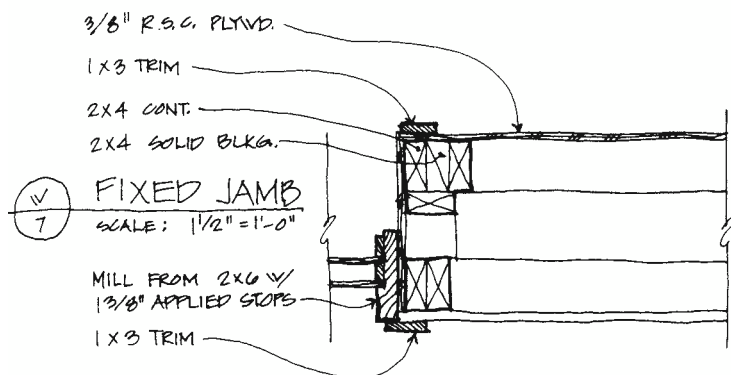 3/8" R.S.C. PLYWD.
1X3 TRIM
2X4 CONT.
2X4 SOLID BLKG.
W
7
FIXED JAMB
SCALE: 1 1/2" = 1'-0"
MILL FROM 2X6 W/
1 3/8" APPLIED STOPS
1X3 TRIM